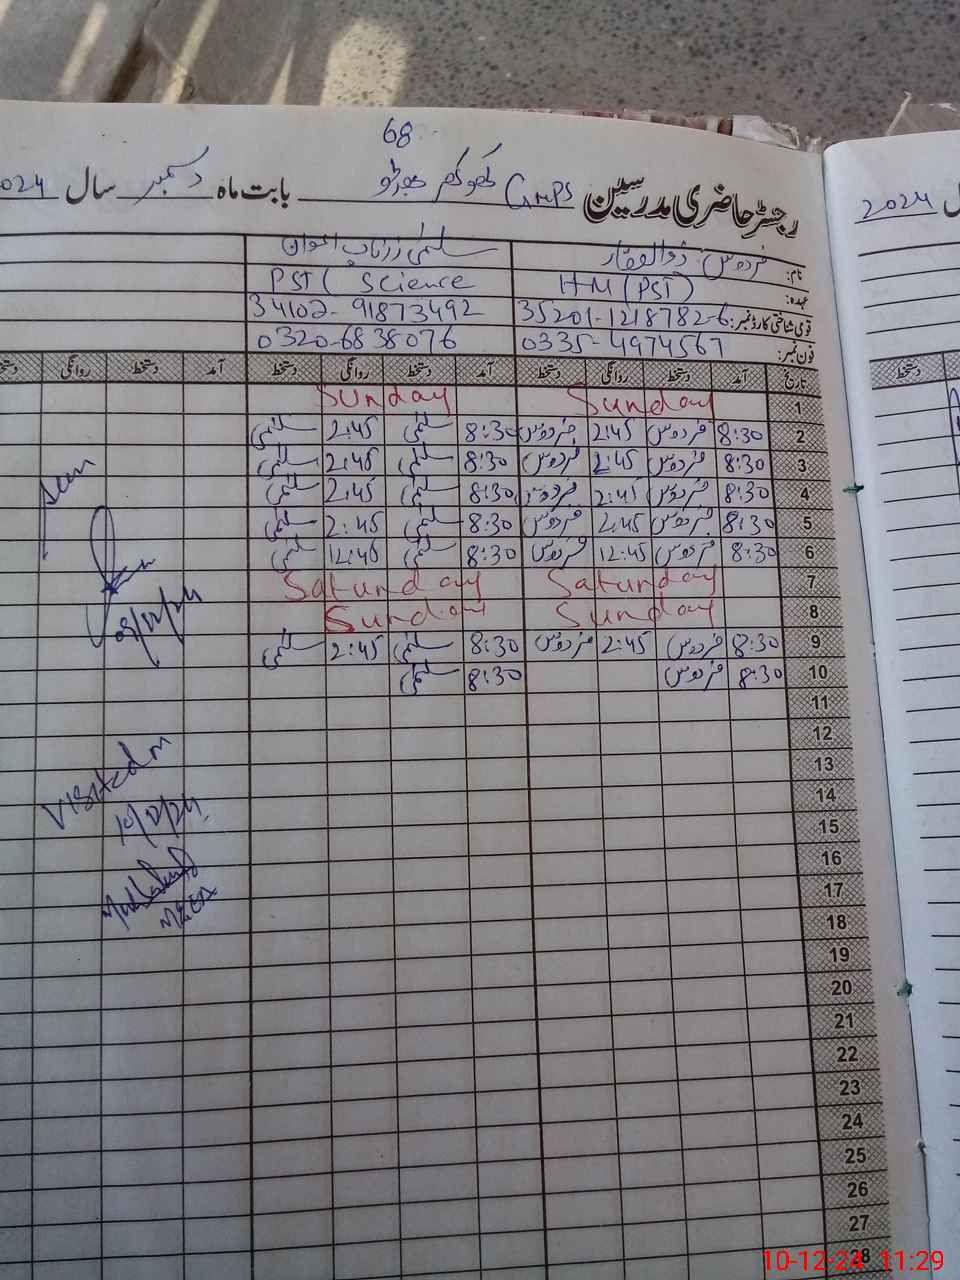 68
رجسٹر حاضری مدرسین GMPS کھوکھر بابت ماہ دسمبر سال 2024
2024
نام: فردوس ذوالفقار سلمیٰ
عہدہ: HM (PST) PST ( Science
قومی شناختی کارڈ نمبر: 35201-1218782-6 34102-91873492
فون نمبر: 0335-4974567 0320-6838076
تاریخ آمد دستخط روانگی دستخط آمد دستخط روانگی دستخط آمد دستخط روانگی دستخط
1 Sunday Sunday
2 8:30 فردوس 2:45 فردوس 8:30 سلمیٰ 2:45 سلمیٰ
3 8:30 فردوس 2:45 فردوس 8:30 سلمیٰ 2:45 سلمیٰ
4 8:30 فردوس 2:45 فردوس 8:30 سلمیٰ 2:45 سلمیٰ
5 8:30 فردوس 2:45 فردوس 8:30 سلمیٰ 2:45 سلمیٰ
6 8:30 فردوس 12:45 فردوس 8:30 سلمیٰ 12:45 سلمیٰ
7 Saturday Saturday
8 Sunday Sunday
9 8:30 فردوس 2:45 فردوس 8:30 سلمیٰ 2:45 سلمیٰ
10 8:30 فردوس 8:30 سلمیٰ
11
12
13
14
15
16
17
18
19
20
21
22
23
24
25
26
27
28
Visited on
10/12/24
10-12-24 11:29